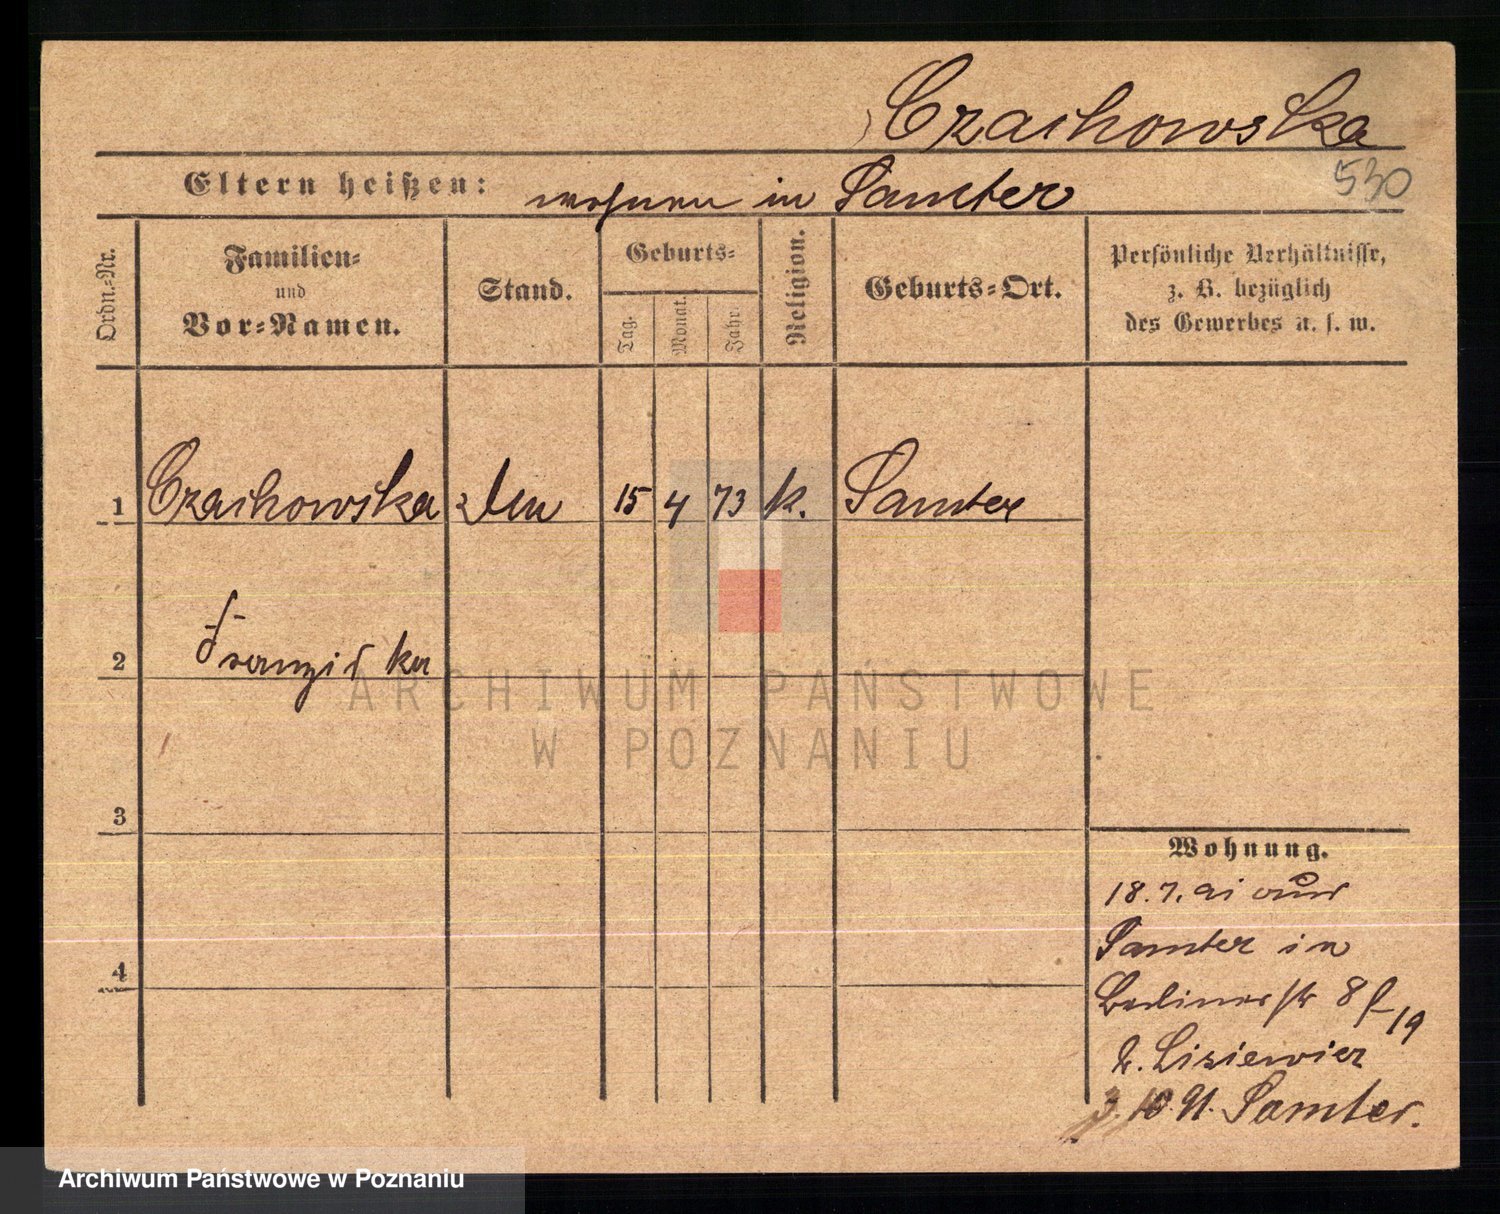 Czachowska
530
Eltern heißen: wohnen in Samter
Ordn.-Nr.
Familien-
und
Vor-Namen.
Stand.
Geburts-
Tag.
Monat.
Jahr.
Religion.
Geburts-Ort.
Persönliche Verhältnisse,
z. B. bezüglich
des Gewerbes u. s. w.
1 Czachowska 15 4 73 k. Samter
2 Franziska
ARCHIWUM PAŃSTWOWE
W POZNANIU
3
4
Wohnung.
18.7.91 aus
Samter in
Berlinerstr 8
19
b. Lisiewicz
3.10.91. Samter.
Archiwum Państwowe w Poznaniu